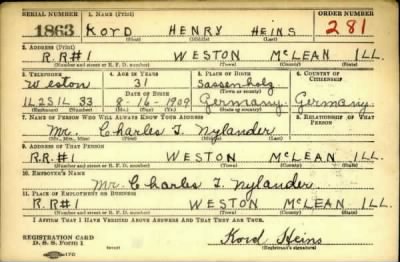 SERIAL NUMBER 1. NAME (Print) ORDER NUMBER
1863 KORD HENRY HEINS 281
(First) (Middle) (Last)
2. ADDRESS (Print)
R.R.#1 WESTON McLEAN ILL.
(Number and street or R. F. D. number) (Town) (County) (State)
3. TELEPHONE 4. AGE IN YEARS 5. PLACE OF BIRTH 6. COUNTRY OF CITIZENSHIP
Weston 31 Sassenholz
DATE OF BIRTH (Town or county)
8-16-1909 Germany Germany
(Exchange) (Number) (Mo.) (Day) (Yr.) (State or country)
7. NAME OF PERSON WHO WILL ALWAYS KNOW YOUR ADDRESS 8. RELATIONSHIP OF THAT PERSON
Mr. Charles T. Nylander
(Mr., Mrs., Miss) (First) (Middle) (Last)
9. ADDRESS OF THAT PERSON
R.R.#1 WESTON McLEAN ILL.
(Number and street or R. F. D. number) (Town) (County) (State)
10. EMPLOYER'S NAME
Mr. Charles T. Nylander
11. PLACE OF EMPLOYMENT OR BUSINESS
R.R.#1 WESTON McLEAN ILL.
(Number and street or R. F. D. number) (Town) (County) (State)
I AFFIRM THAT I HAVE VERIFIED ABOVE ANSWERS AND THAT THEY ARE TRUE.
REGISTRATION CARD
D. S. S. Form 1 Kord Heins
(Registrant's signature)